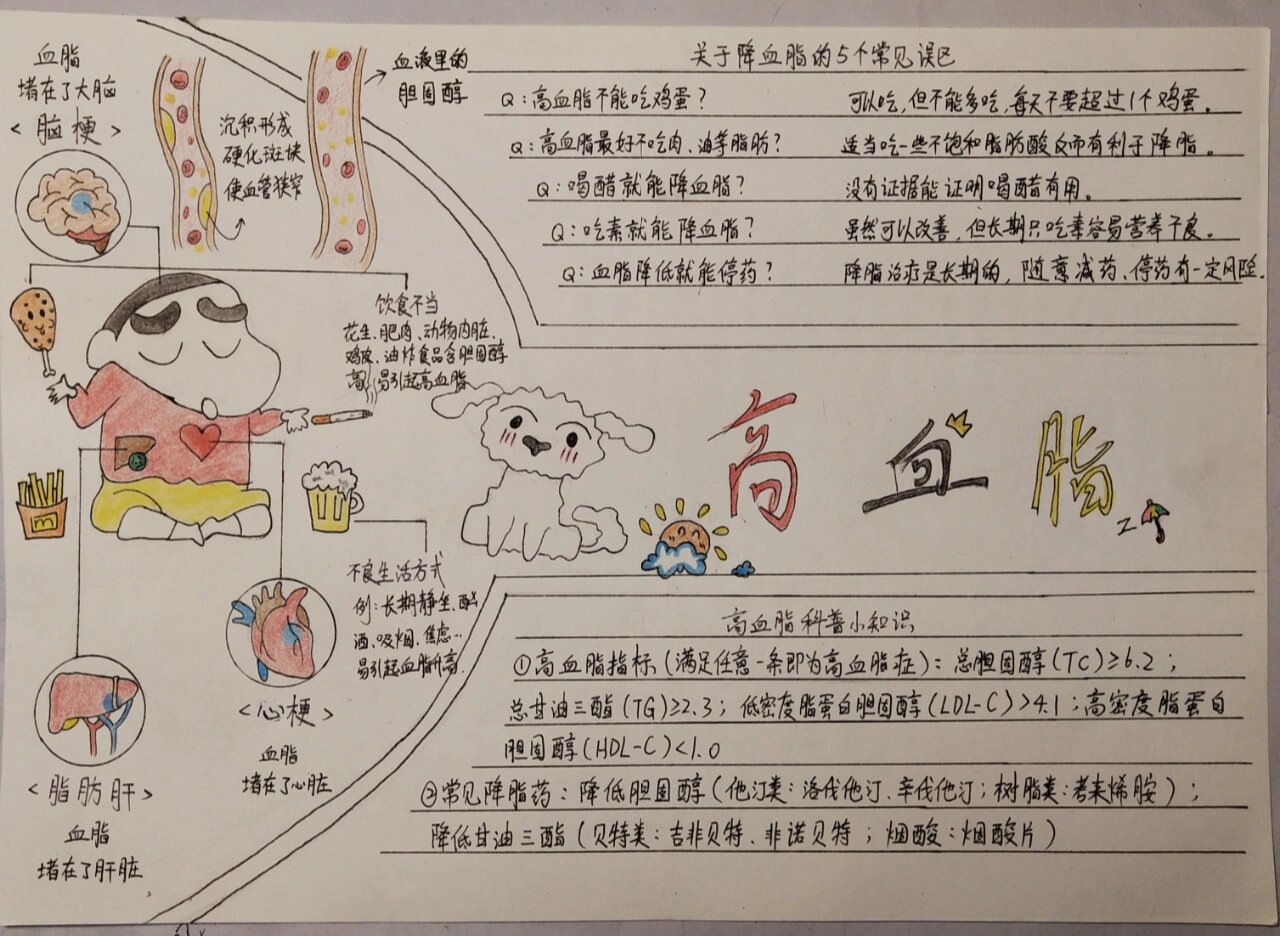 血脂
堵在了大脑
<脑梗>
沉积形成
硬化斑块
使血管狭窄
血液里的
胆固醇
关于降血脂的5个常见误区
Q:高血脂不能吃鸡蛋? 可以吃,但不能多吃,每天不要超过1个鸡蛋。
Q:高血脂最好不吃肉、油等脂肪? 适当吃一些不饱和脂肪酸反而有利于降脂。
Q:喝醋就能降血脂? 没有证据能证明喝醋有用。
Q:吃素就能降血脂? 虽然可以改善,但长期只吃素容易营养不良。
Q:血脂降低就能停药? 降脂治疗是长期的,随意减药、停药有一定风险.
饮食不当
花生、肥肉、动物内脏、
鸡皮、油炸食品含胆固醇
高,易引起高血脂
高血脂
z
不良生活方式
例:长期静坐、酗
酒、吸烟、焦虑…
易引起血脂升高.
<心梗>
血脂
堵在了心脏
<脂肪肝>
血脂
堵在了肝脏
高血脂科普小知识
①高血脂指标(满足任意一条即为高血脂症):总胆固醇(TC)≥6.2;
总甘油三酯(TG)≥2.3;低密度脂蛋白胆固醇(LDL-C)>4.1;高密度脂蛋白
胆固醇(HDL-C)<1.0
②常见降脂药:降低胆固醇(他汀类:洛伐他汀、辛伐他汀;树脂类:考来烯胺);
降低甘油三酯(贝特类:吉非贝特、非诺贝特;烟酸:烟酸片)